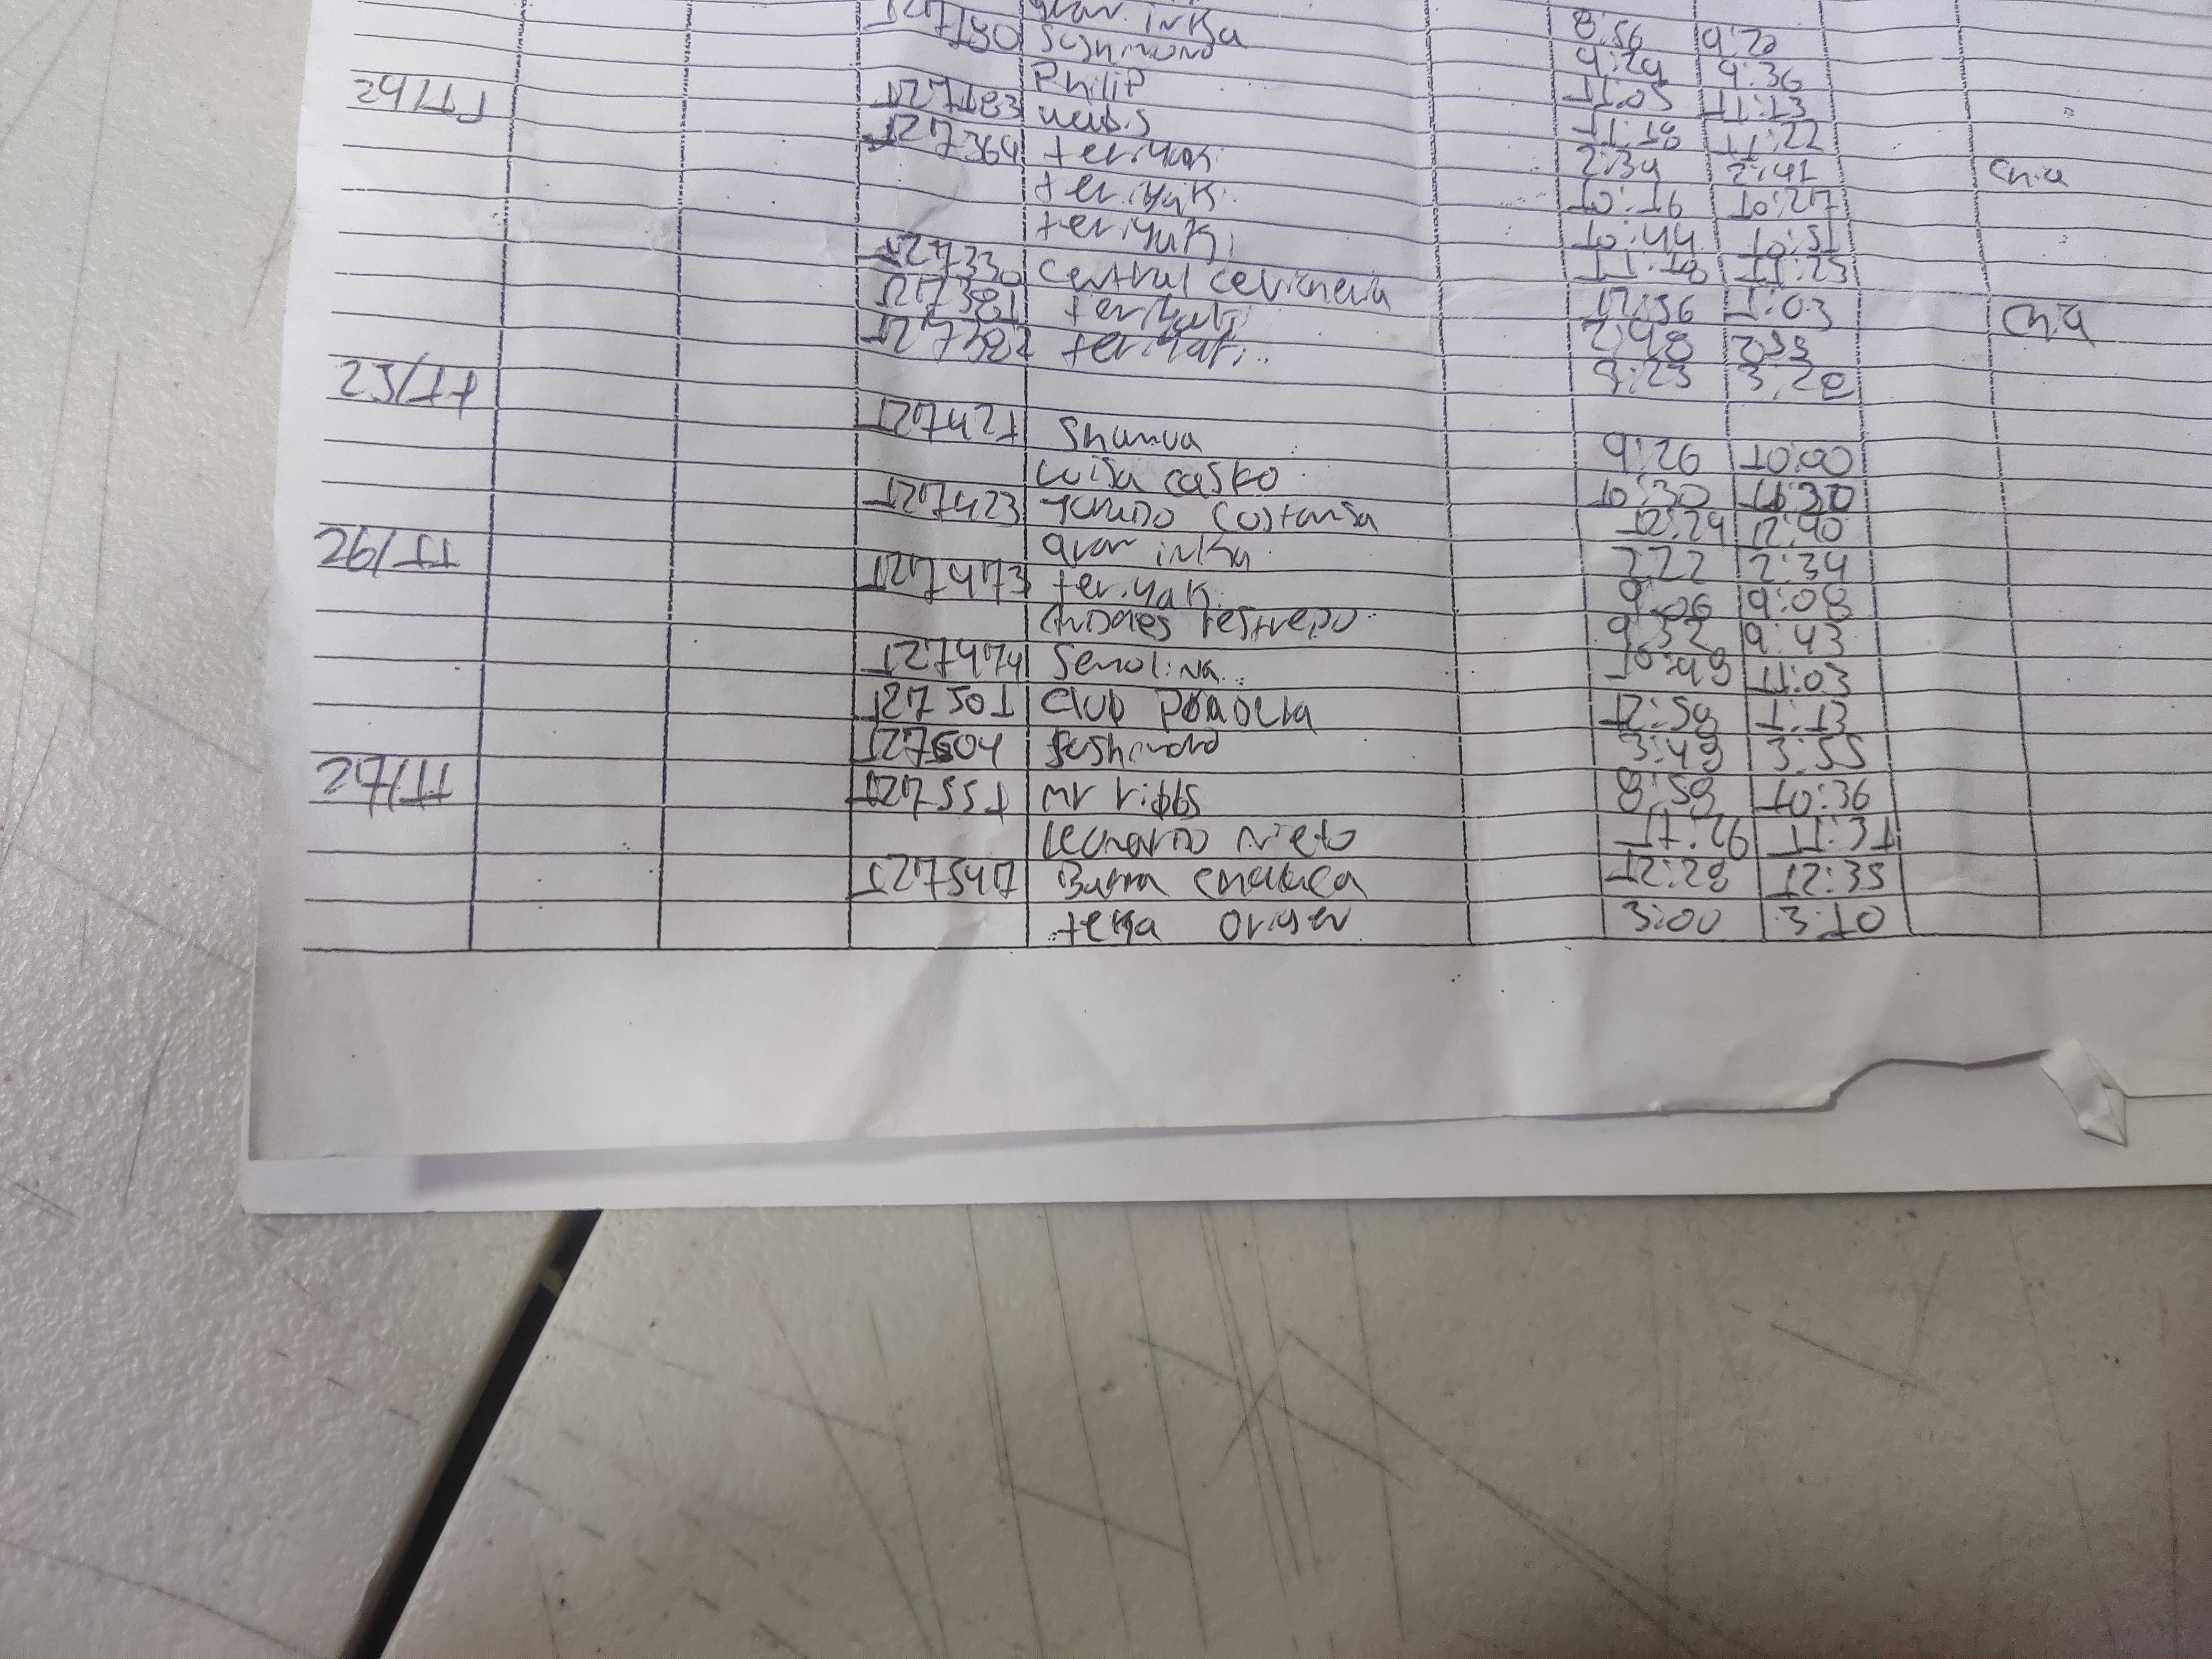 gran inka 8:56 9:20
127180 Sushimoro 9:29 9:36
Philip 11:05 11:13
24/11 127183 11:18 11:22
127364 teriyaki 2:34 2:41 Chia
teriyaki 10:16 10:27
teriyaki 10:44 10:51
127330 Central cevicheria 11:18 11:25
127381 teriyaki 12:56 1:03 Chia
127382 teriyaki 2:48 2:55
25/11 3:23 3:28
127421 Shunua 9:26 10:00
Luisa casko 10:30
127423 Costansa 12:24 12:40
26/11 gran inka 2:22 2:34
127473 teriyaki 9:06 9:08
Andres restrepo 9:32 9:43
127474 Semolina 10:49 11:03
127501 Club 12:58 1:13
127504 Sushimoro 3:49 3:55
27/11 127551 mr ribbs 8:59 10:36
Leonardo nieto 11:26 11:31
127547 Burra chalaca 12:28 12:35
terra origen 3:00 3:10